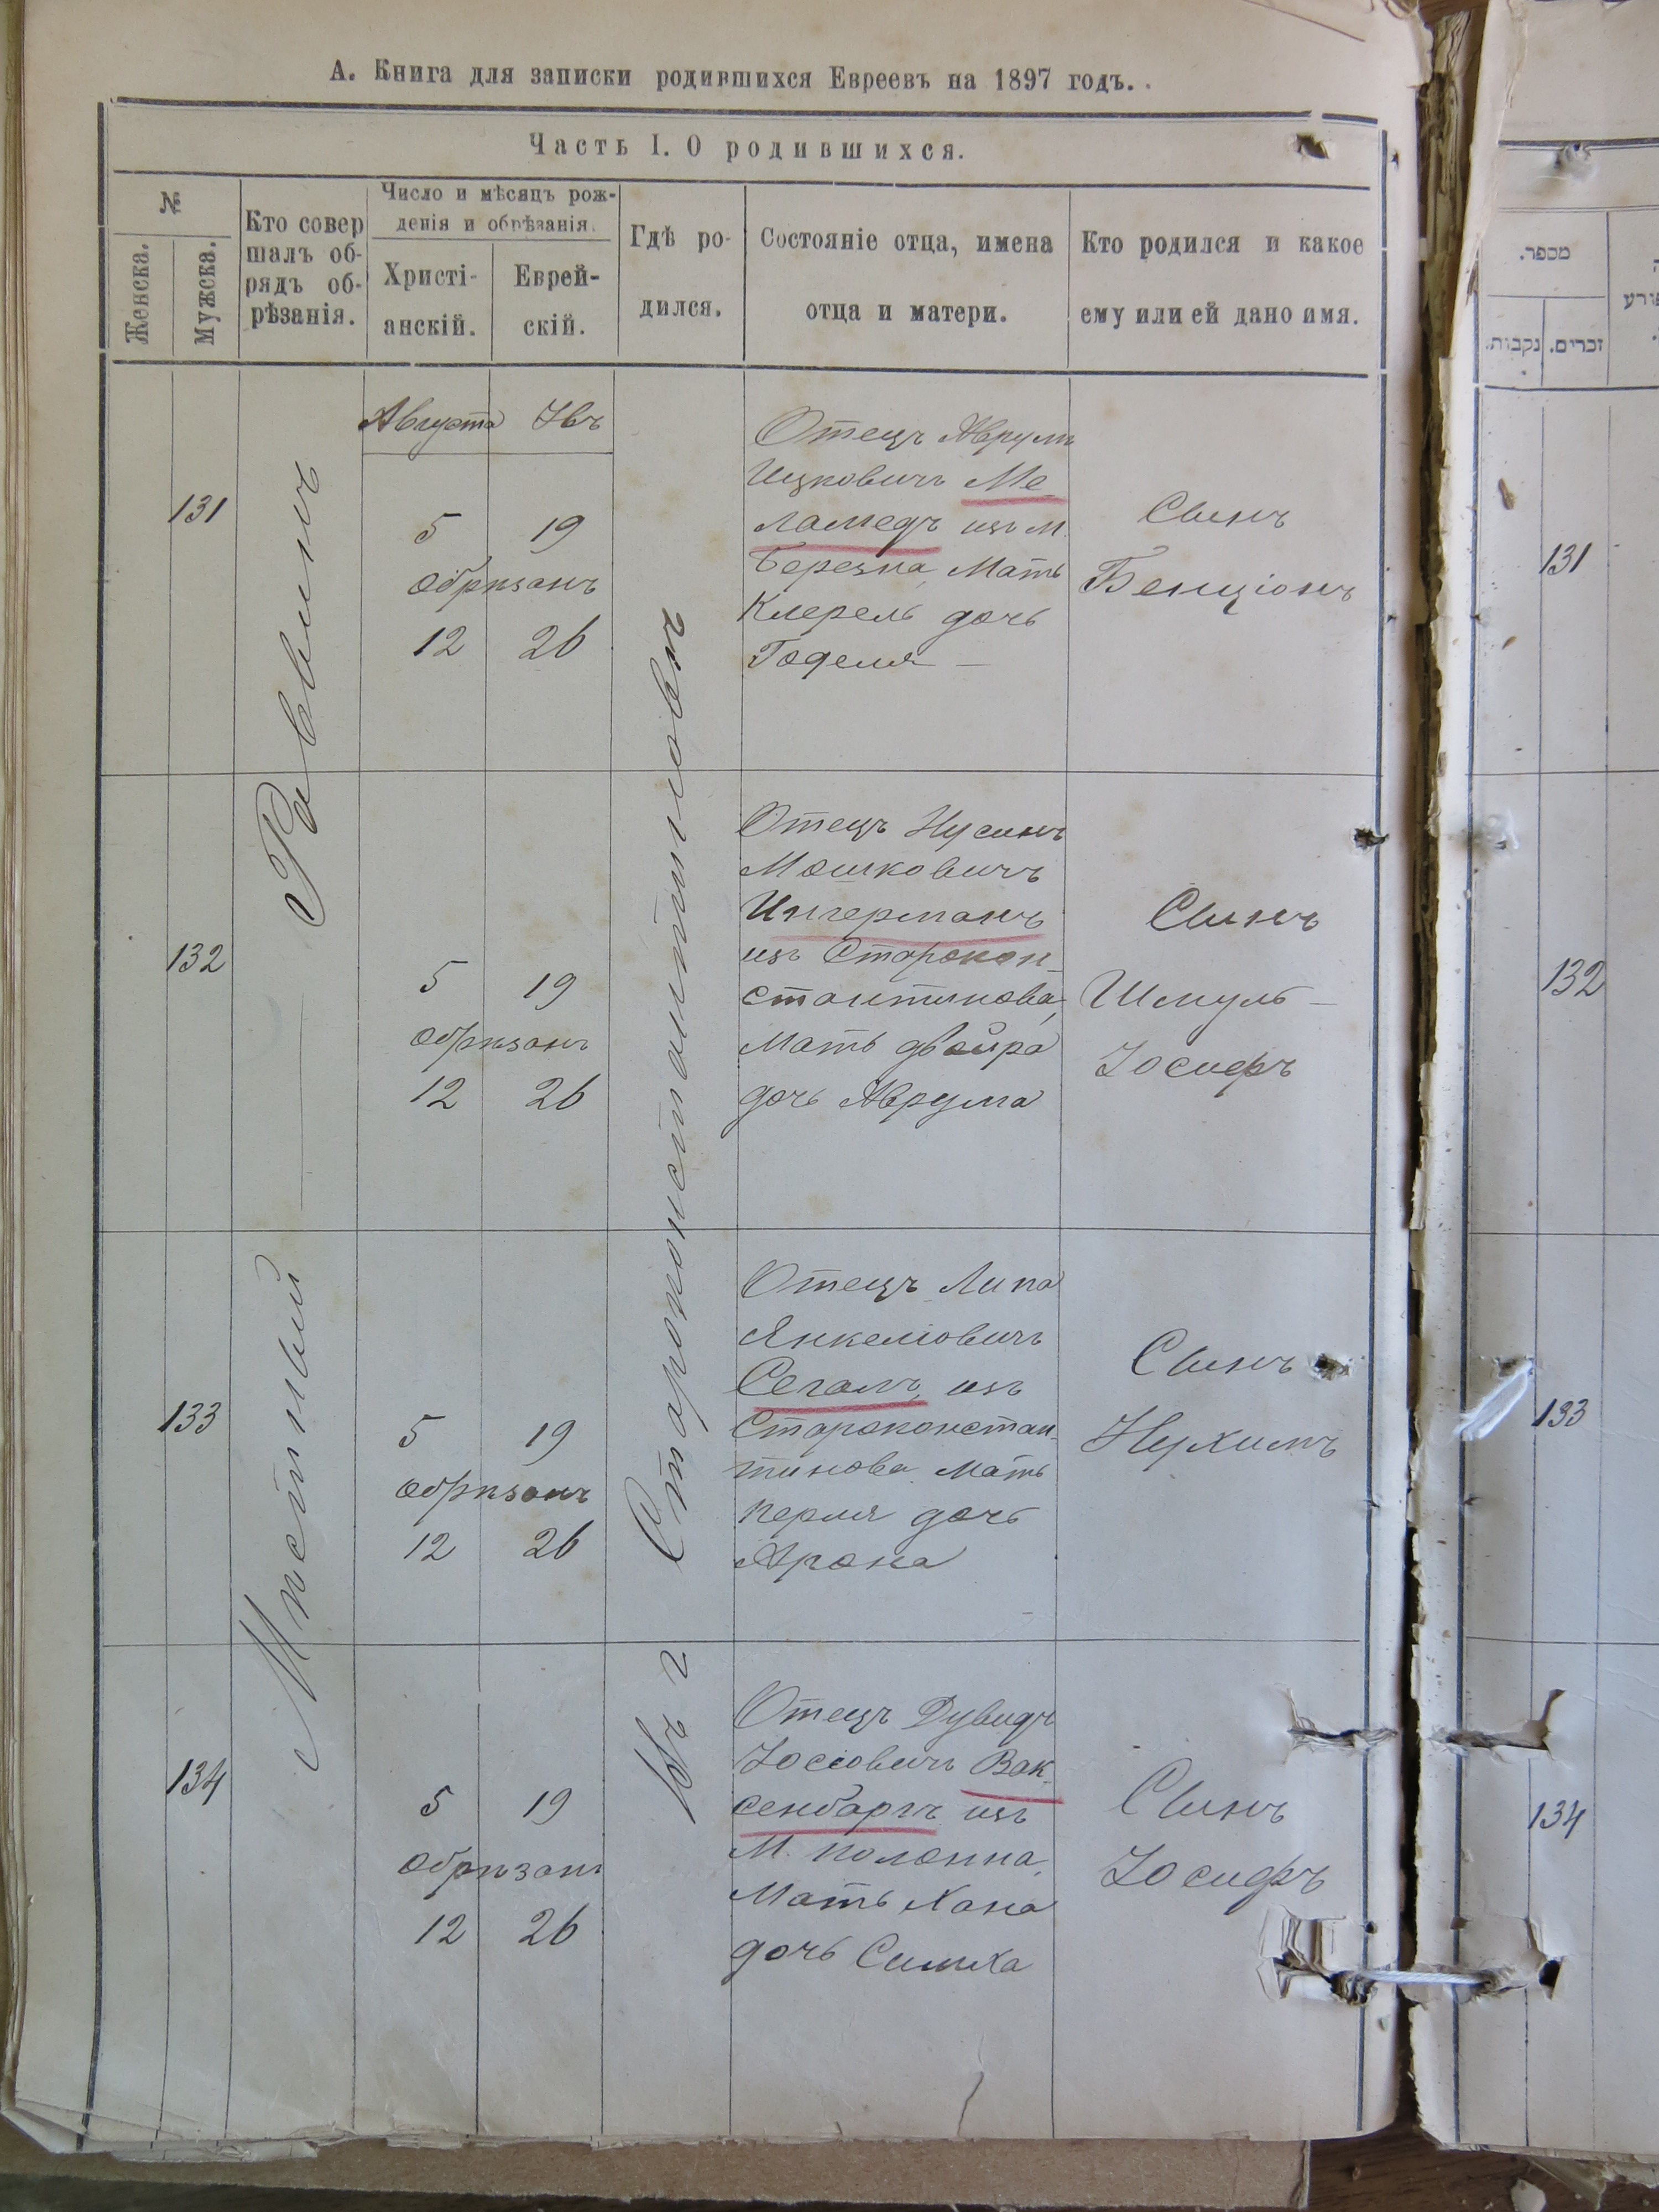 А. Книга для записки родившихся Евреевъ на 1897 годъ.
Часть I. О родившихся.
№
Женска.
Мужска.
Кто совер
шалъ об-
рядъ об-
рѣзанія.
Число и мѣсяцъ рож-
денія и обрѣзанія.
Христі-
анскій.
Еврей-
скій.
Гдѣ ро-
дился.
Состояніе отца, имена
отца и матери.
Кто родился и какое
ему или ей дано имя.
Мѣстный — Равинъ
Въ г Староконстантиновѣ
Августа
131
5 19
обрѣзанъ
12 26
Отецъ Аврумъ
Ицковичъ Ме
ламедъ изъ М.
Березна, Мать
дочь
Годеля —
Сынъ
Бенціонъ
132
5 19
обрѣзанъ
12 26
Отецъ Нусинъ
Мошковичъ
Ингерманъ
изъ Старокон-
стантинова,
Мать двойра
дочь Аврума
Сынъ
Шмуль —
Іосифъ
133
5 19
обрѣзанъ
12 26
Отецъ Липа
Янкеліовичъ
Сегалъ, изъ
Староконстан-
тинова Мать
перля дочь
Арона
Сынъ
Нухимъ
134
5 19
обрѣзанъ
12 26
Отецъ Дувидъ
Іосіовичъ Вак-
сенбаргъ изъ
М. полонна,
Мать Хана
дочь Симха
Сынъ
Іосифъ
מספר.
זכרים.
נקבות.
131
132
133
134